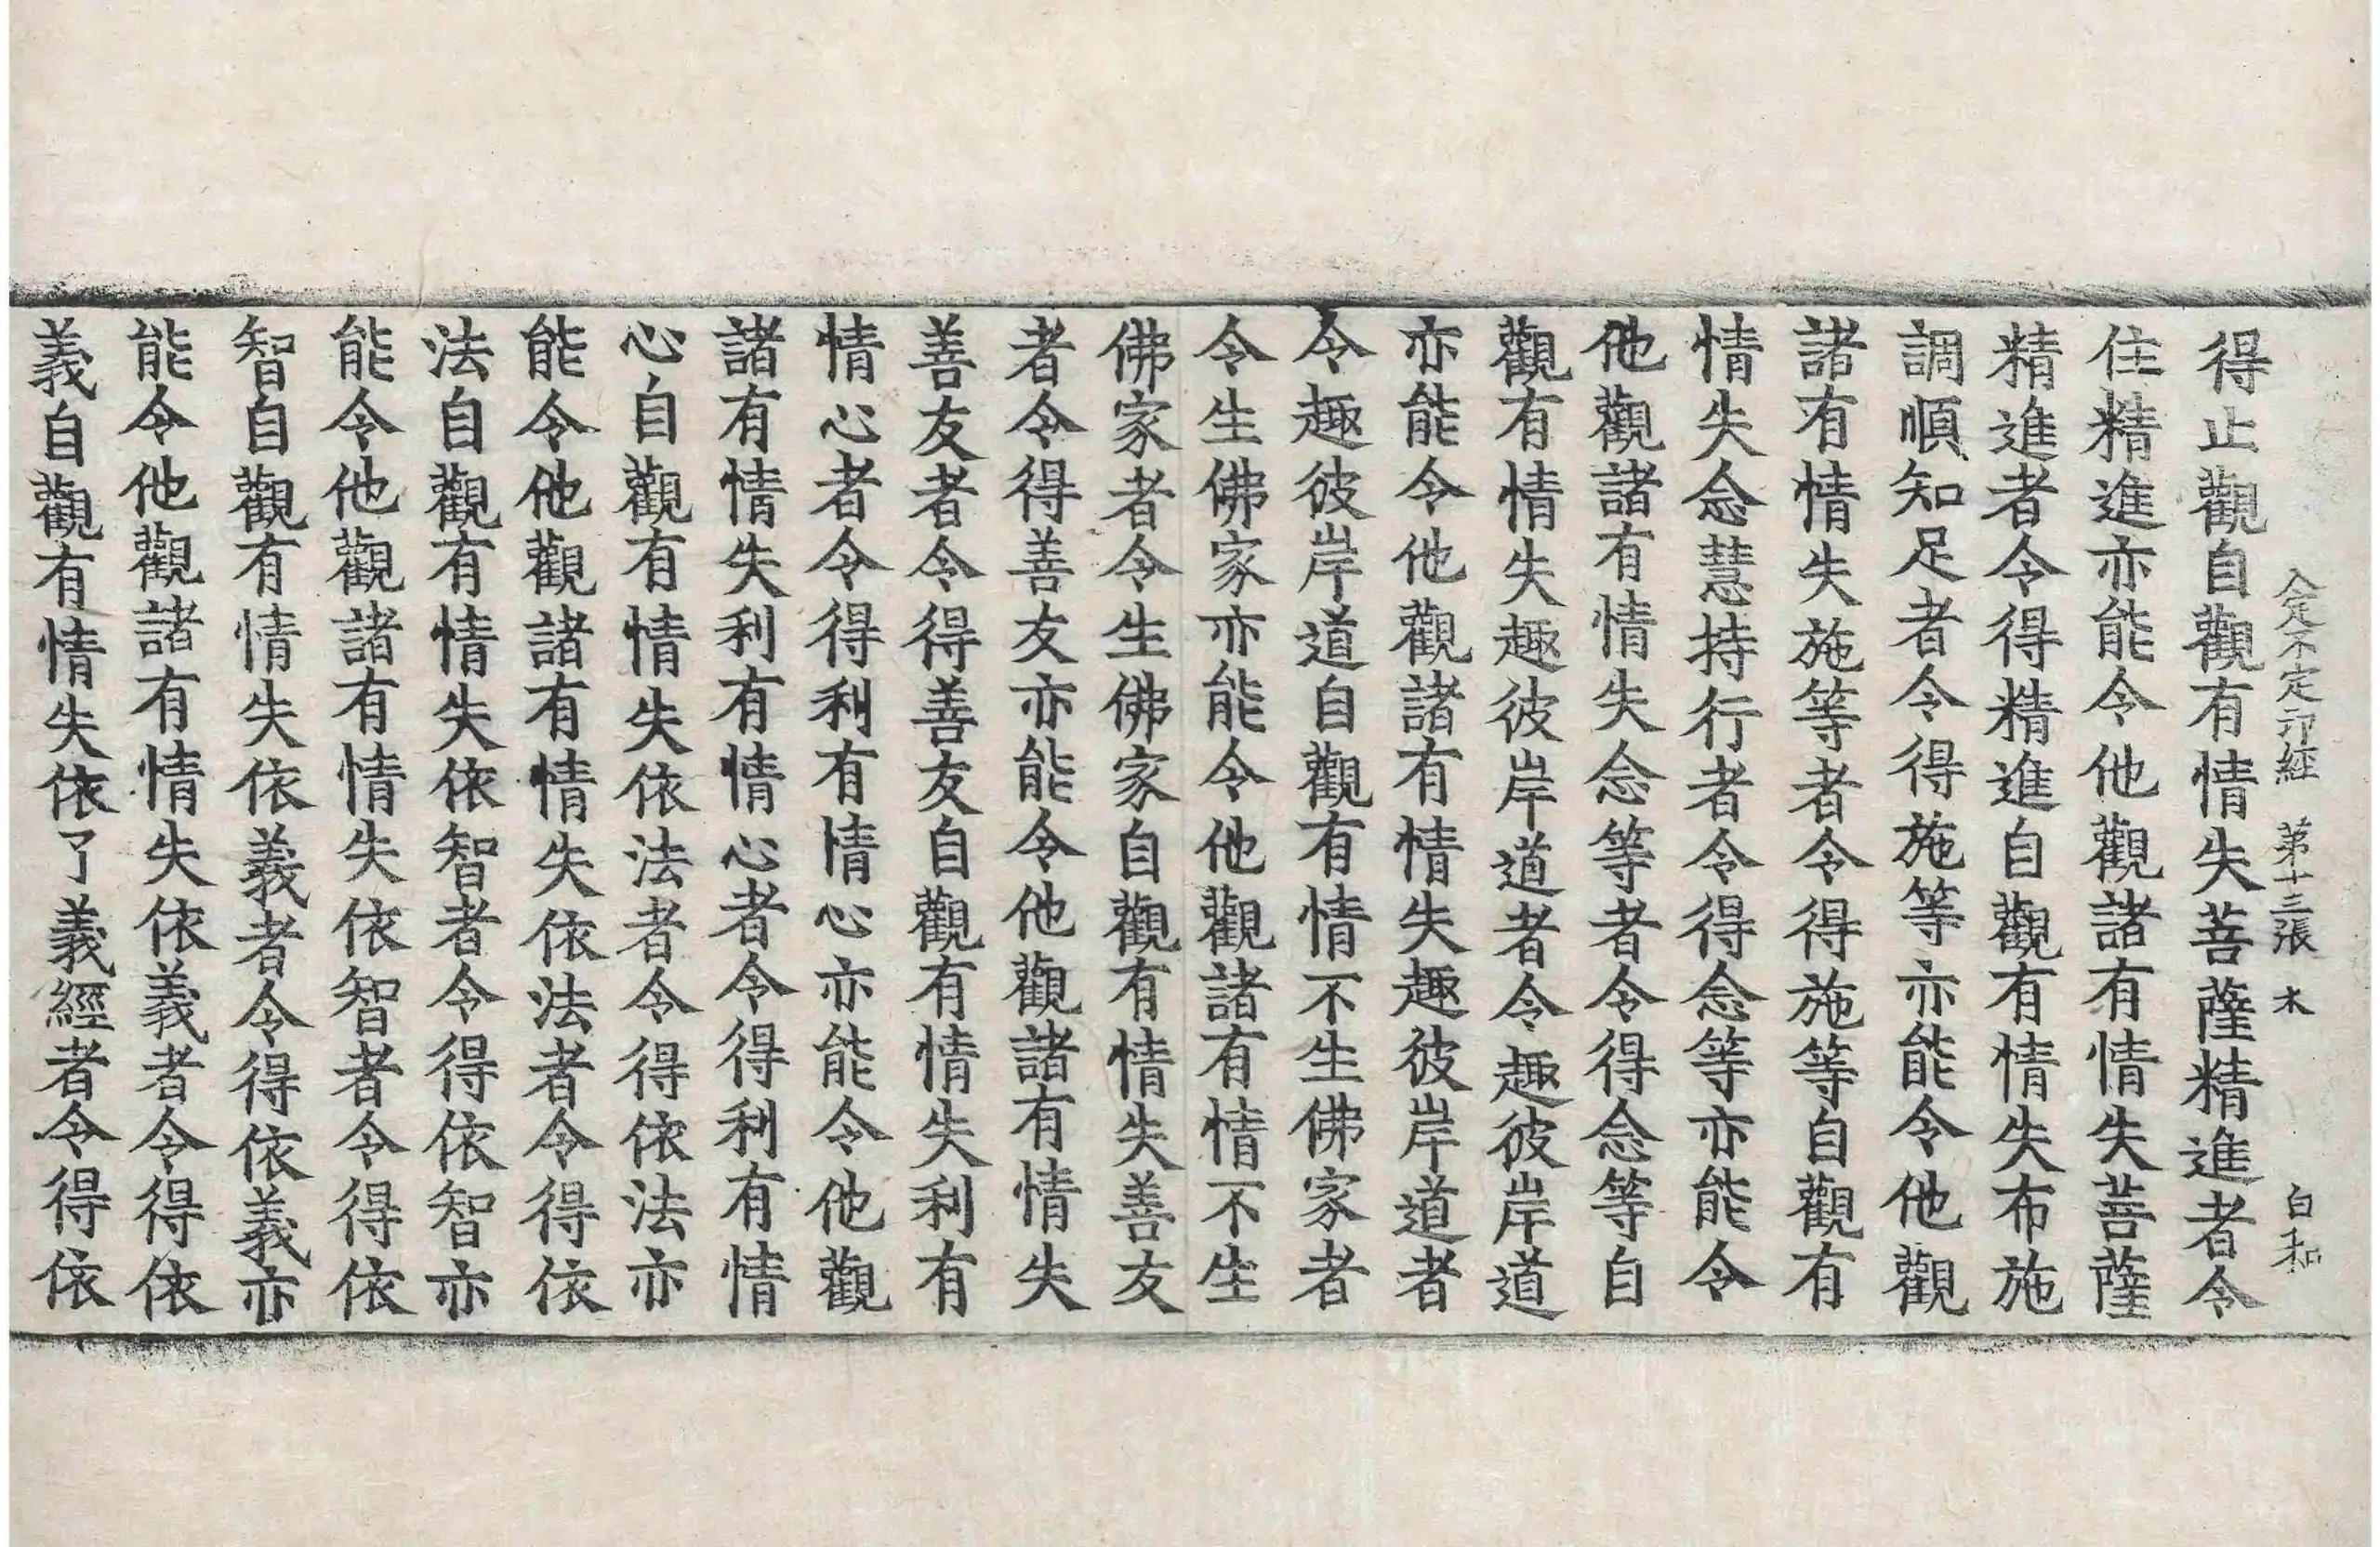 入定不定印經 第十三張 木 白和
得止觀自觀有情失菩薩精進者令
住精進亦能令他觀諸有情失菩薩
精進者令得精進自觀有情失布施
調順知足者令得施等亦能令他觀
諸有情失施等者令得施等自觀有
情失念慧持行者令得念等亦能令
他觀諸有情失念等者令得念等自
觀有情失趣彼岸道者令趣彼岸道
亦能令他觀諸有情失趣彼岸道者
令趣彼岸道自觀有情不生佛家者
令生佛家亦能令他觀諸有情不生
佛家者令生佛家自觀有情失善友
者令得善友亦能令他觀諸有情失
善友者令得善友自觀有情失利有
情心者令得利有情心亦能令他觀
諸有情失利有情心者令得利有情
心自觀有情失依法者令得依法亦
能令他觀諸有情失依法者令得依
法自觀有情失依智者令得依智亦
能令他觀諸有情失依智者令得依
智自觀有情失依義者令得依義亦
能令他觀諸有情失依義者令得依
義自觀有情失依了義經者令得依